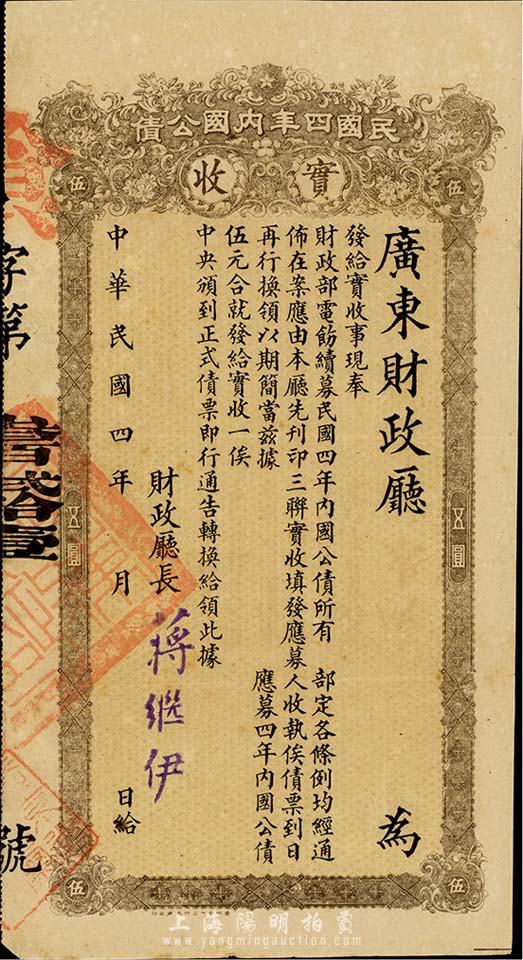 民國四年內國公債
實收
伍
伍
廣東財政廳 為
發給實收事現奉
財政部電飭續募民國四年內國公債所有 部定各條例均經通
佈在案應由本廳先刊印三聯實收填發應募人收執俟債票到日
再行換領以期簡當茲據 應募四年內國公債
伍元合就發給實收一俟
中央頒到正式債票即行通告轉換給領此據
財政廳長 蔣繼伊
中華民國四年 月 日給
五圓
五圓
字第
號
伍
伍
上海陽明拍賣
www.yangmingauction.com